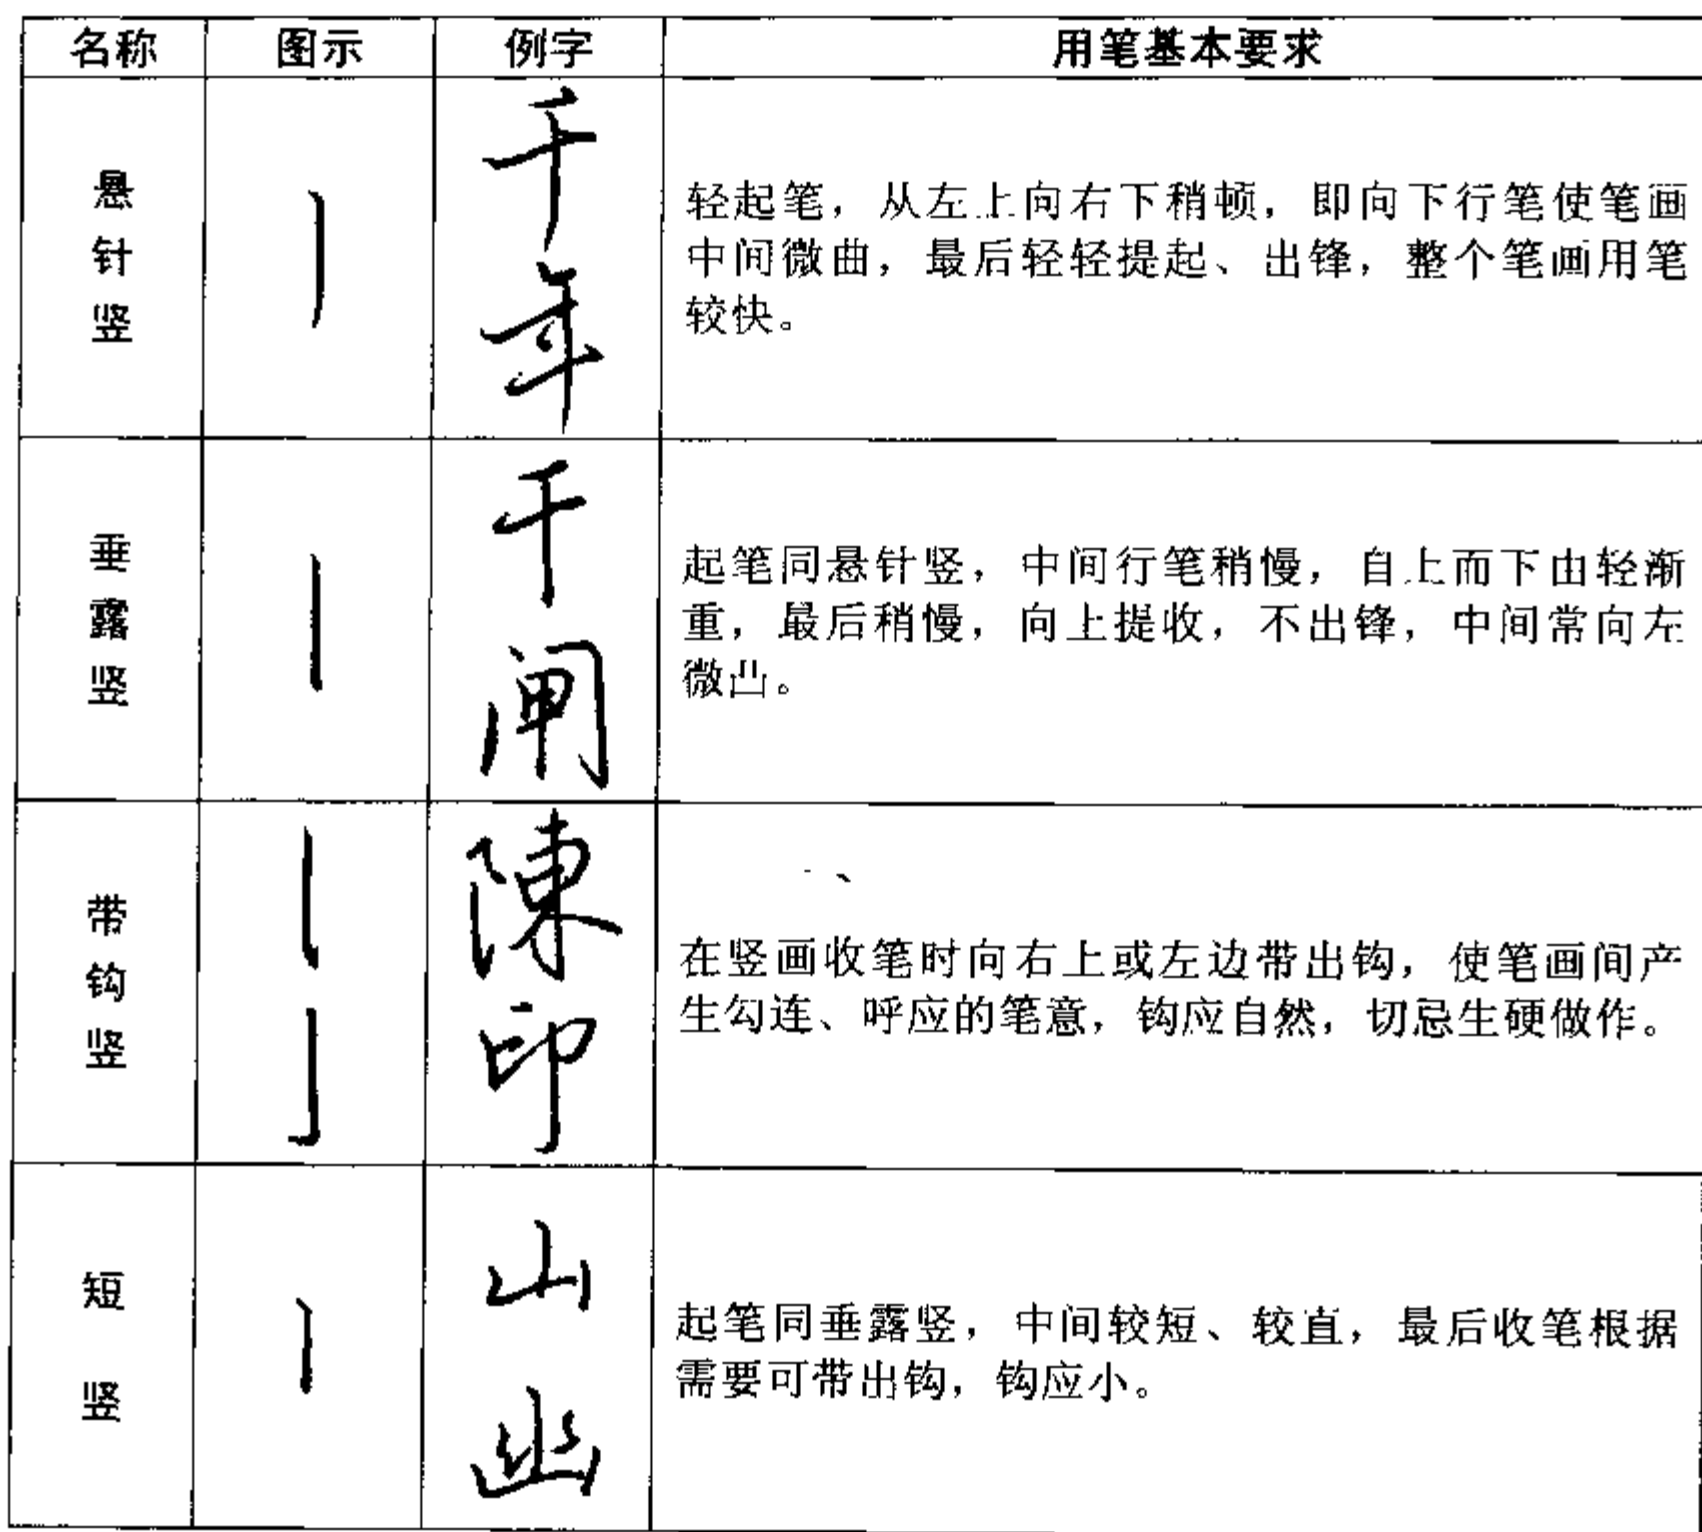 名称 图示 例字 用笔基本要求
悬针竖
千
年
轻起笔，从左上向右下稍顿，即向下行笔使笔画
中间微曲，最后轻轻提起、出锋，整个笔画用笔
较快。
垂露竖
干
闸
起笔同悬针竖，中间行笔稍慢，自上而下由轻渐
重，最后稍慢，向上提收，不出锋，中间常向左
微凸。
带钩竖
陳
印
在竖画收笔时向右上或左边带出钩，使笔画间产
生勾连、呼应的笔意，钩应自然，切忌生硬做作。
短竖
山
幽
起笔同垂露竖，中间较短、较直，最后收笔根据
需要可带出钩，钩应小。